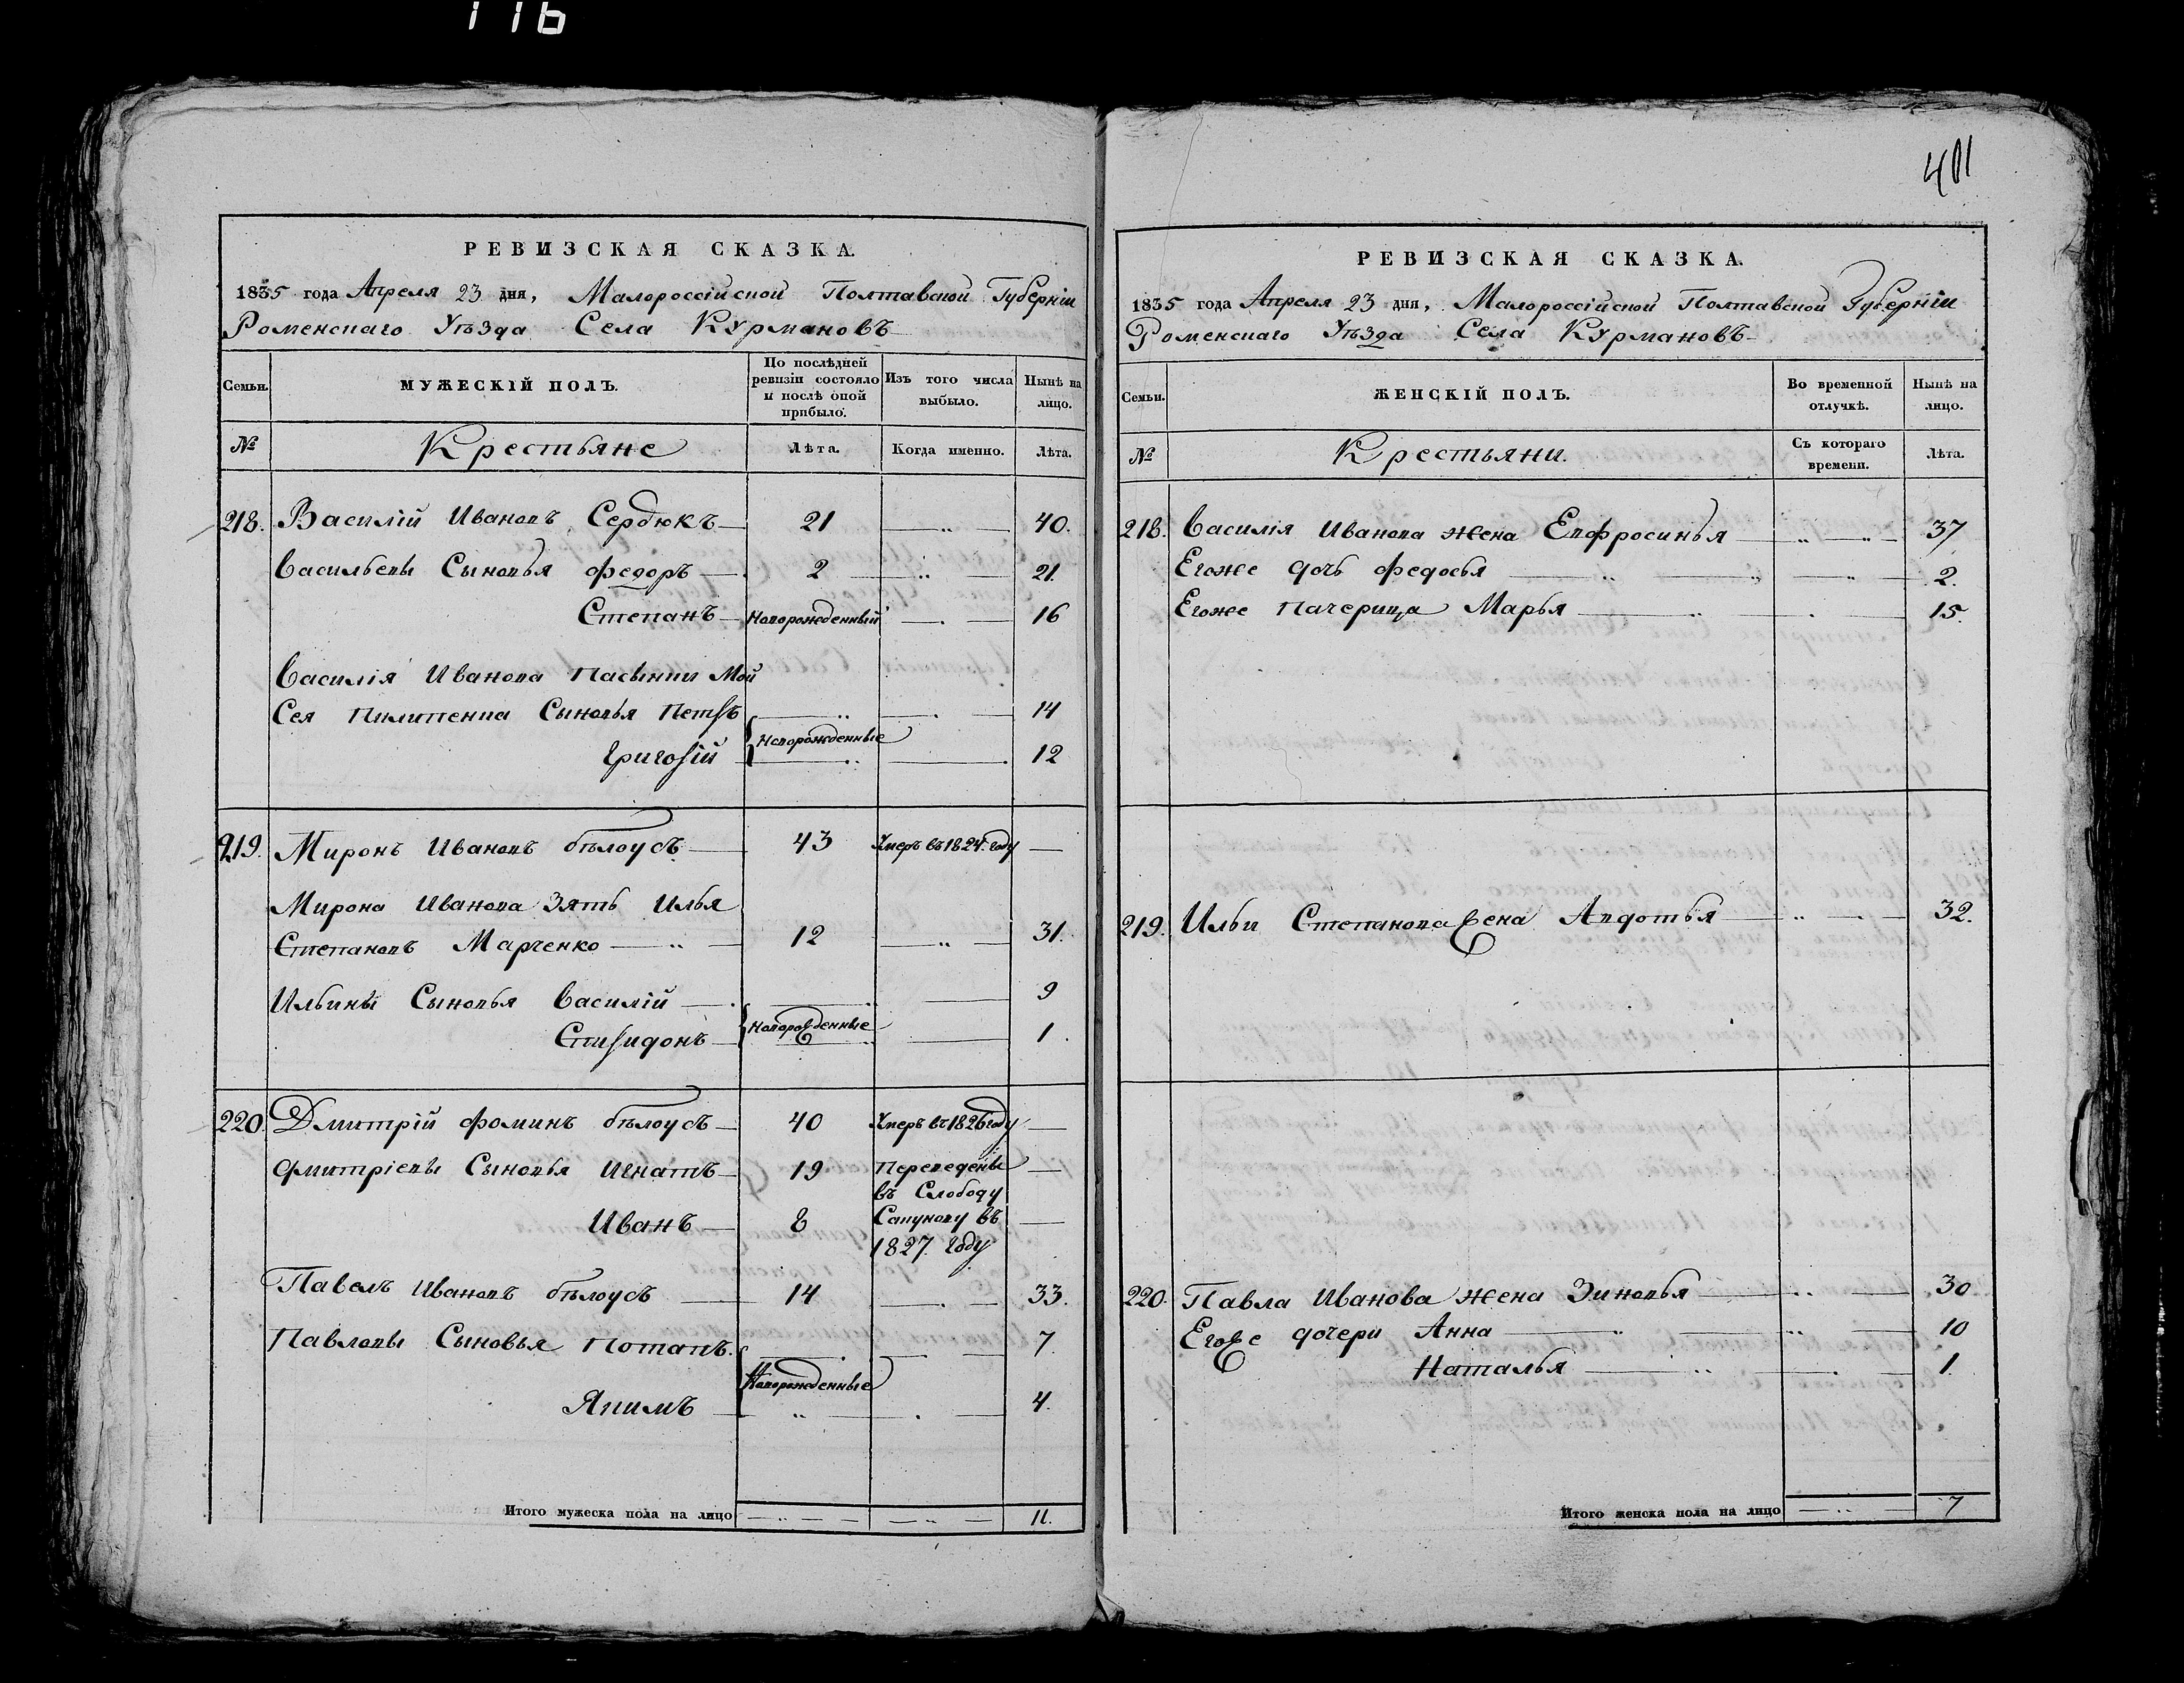 116
РЕВИЗСКАЯ СКАЗКА.
1835 года Апреля 23 дня, Малороссійской Полтавской Губерніи
Роменскаго Уѣзда Села Курмановъ
Семьи.
МУЖЕСКІЙ ПОЛЪ.
По послѣдней ревизіи состояло и послѣ оной прибыло.
Изъ того числа выбыло.
Нынѣ на лицо.
№
Крестьяне
Лѣта.
Когда именно.
Лѣта.
218. Василій Ивановъ Сердюкъ 21 40.
Васильевы Сыновья Федоръ 2 21.
Степанъ Новорожденный 16
Василія Иванова Пасынки Мой
Сея Пилипенка Сыновья Петръ 14
Новорожденные
Григорій 12
219. Миронъ Ивановъ бѣлоусъ 43 Умеръ въ 1824. году
Мирона Иванова Зять Илья
Степановъ Марченко 12 31.
Ильины Сыновья Василій 9
Новорожденные
Спиридонъ 1.
220. Дмитрій Фоминъ бѣлоусъ 40 Умеръ въ 1826 году
Дмитріевы Сыновья Игнатъ 19 Переведены
въ Слободу
Иванъ 8 Сапунову въ
1827. году
Павелъ Ивановъ бѣлоусъ 14 33.
Павловы Сыновья Потапъ. 7.
Новорожденные
Якимъ 4.
Итого мужеска пола на лицо 11.
401
РЕВИЗСКАЯ СКАЗКА.
1835 года Апреля 23 дня, Малороссійской Полтавской Губерніи
Роменскаго Уѣзда Села Курмановъ
Семьи.
ЖЕНСКІЙ ПОЛЪ.
Во временной отлучкѣ.
Нынѣ на лицо.
№
Крестьяни.
Съ котораго времени.
Лѣта.
218. Василія Иванова жена Евфросинья 37
Егоже дочь Федосья 2.
Егоже Пачерица Марья 15.
219. Ильи Степанова жена Авдотья 32.
220. Павла Иванова жена Зиновья 30
Егоже дочери Анна 10
Наталья 1.
Итого женска пола на лицо 7